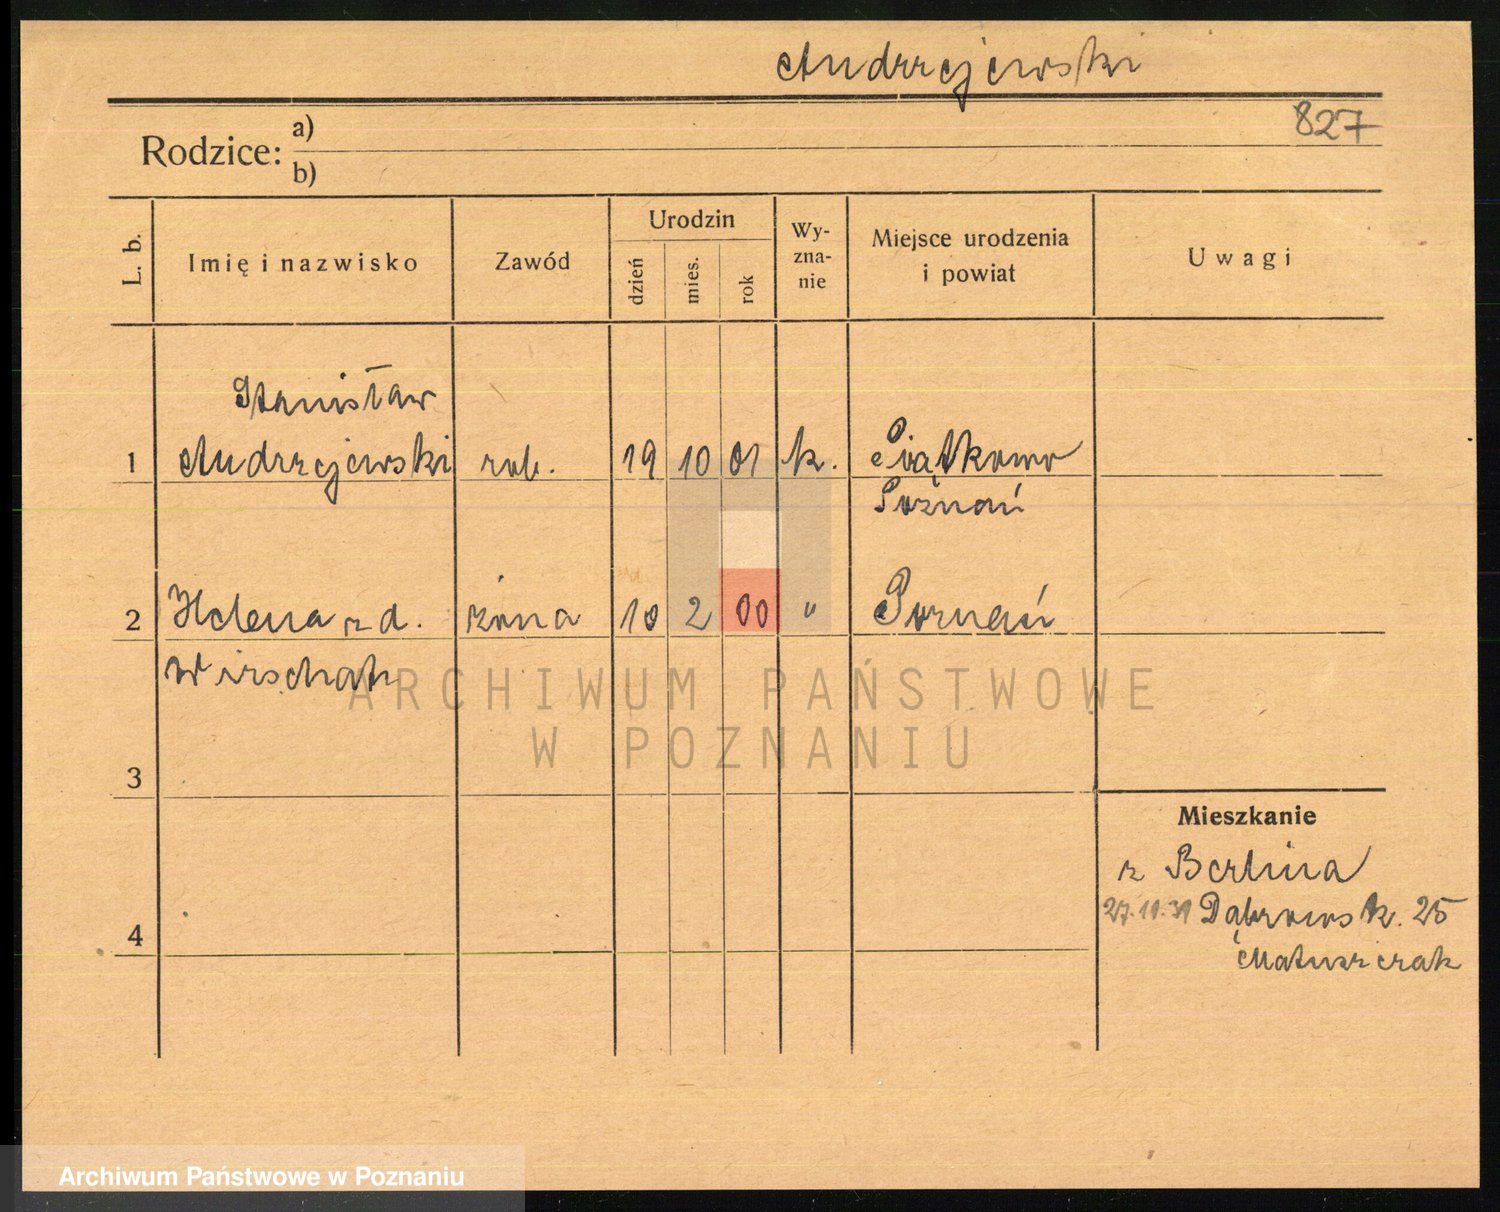 Andrzejewski
827
Rodzice: a)
b)
L. b.
Imię i nazwisko
Zawód
Urodzin
dzień
mies.
rok
Wy-
zna-
nie
Miejsce urodzenia
i powiat
Uwagi
Stanisław
1 Andrzejewski rob. 19 10 01 k. Piątkowo
Poznań
2 Helena z d. żona 10 2 00 " Poznań
Wirschak
ARCHIWUM PAŃSTWOWE
W POZNANIU
3
Mieszkanie
z Berlina
27.10.31 Dąbrowsk. 25
4
Matuszczak
Archiwum Państwowe w Poznaniu